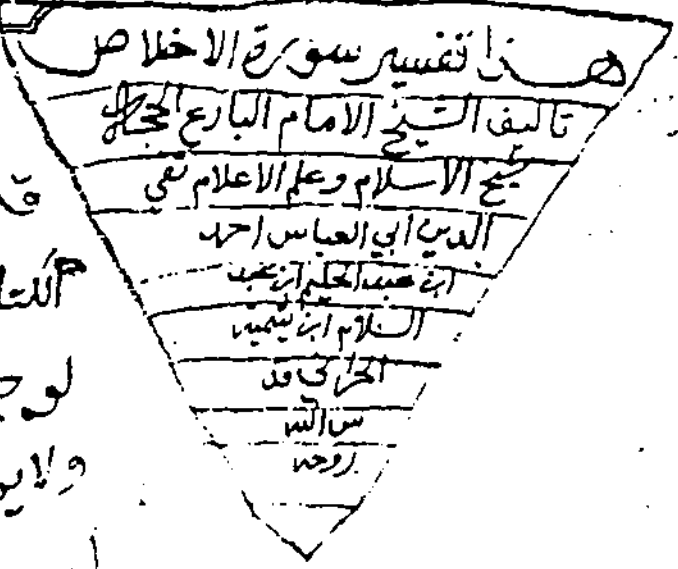 هذا تفسير سورة الاخلاص
تاليف الشيخ الامام البارع الحجة
شيخ الاسلام وعلم الاعلام تقي
الدين ابي العباس احمد
ابن عبد الحليم ابن عبد
السلام ابن تيمية
الحراني قد
س الله
روحه